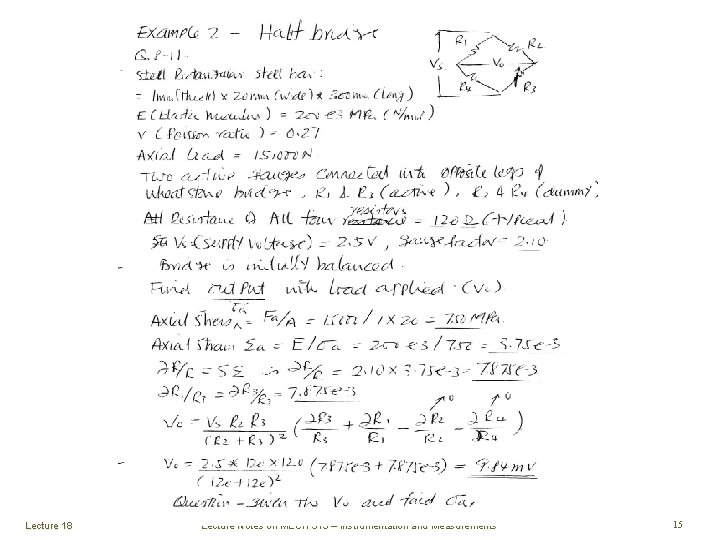 Example 2 - Half bridge
Q.8-11-
R1 R2
Vs Vo
R4 R3
Steel Rectangular steel bar:
= 1mm (thick) x 20mm (wide) x 300mm (long)
E (Elastic modulus) = 200e3 MPa (N/mm²)
ν (Poisson ratio) = 0.27
Axial load = 15,000 N.
Two active gauges connected with opposite legs of
wheatstone bridge, R1 & R3 (active), R2 & R4 (dummy)
resistors
All Resistance of All four resistance = 120 Ω (typical).
Vs (supply voltage) = 2.5 V, gauge factor = 2.10
Bridge is initially balanced.
Find output with load applied (Vo).
Axial stress σa = Fa/A = 15,000 / 1 x 20 = 750 MPa
Axial strain Σa = E/σa = 200e3/750 = 3.75e-3
∂R/R = SΣ ∂R/R = 2.10 x 3.75e-3 = 7.875e-3
∂R1/R1 = ∂R3/R3 = 7.875e-3
Vo = Vs R2 R3 / (R2 + R3)² (∂R3/R3 + ∂R1/R1 - ∂R2/R2 - ∂R4/R4)
Vo = 2.5 * 120 * 120 / (120+120)² (7.875e-3 + 7.875e-3) = 9.84 mV
Question - given the Vo and find σa.
Lecture 18
Lecture Notes on MECH 373 – Instrumentation and Measurements
15